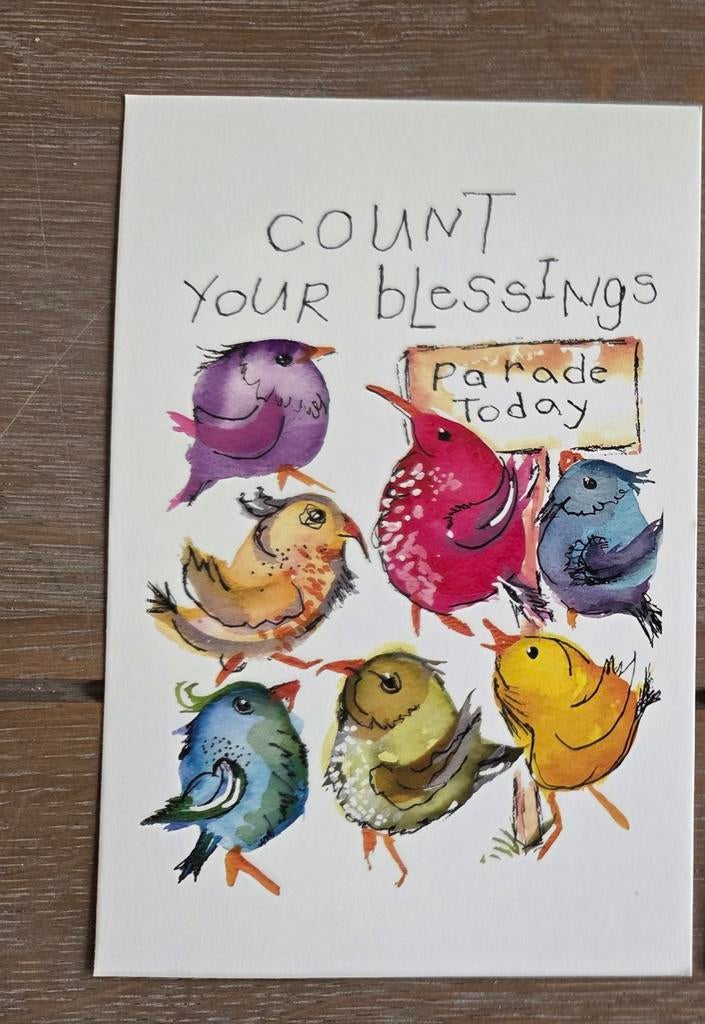 COUNT
YOUR blessINgs
Parade
Today